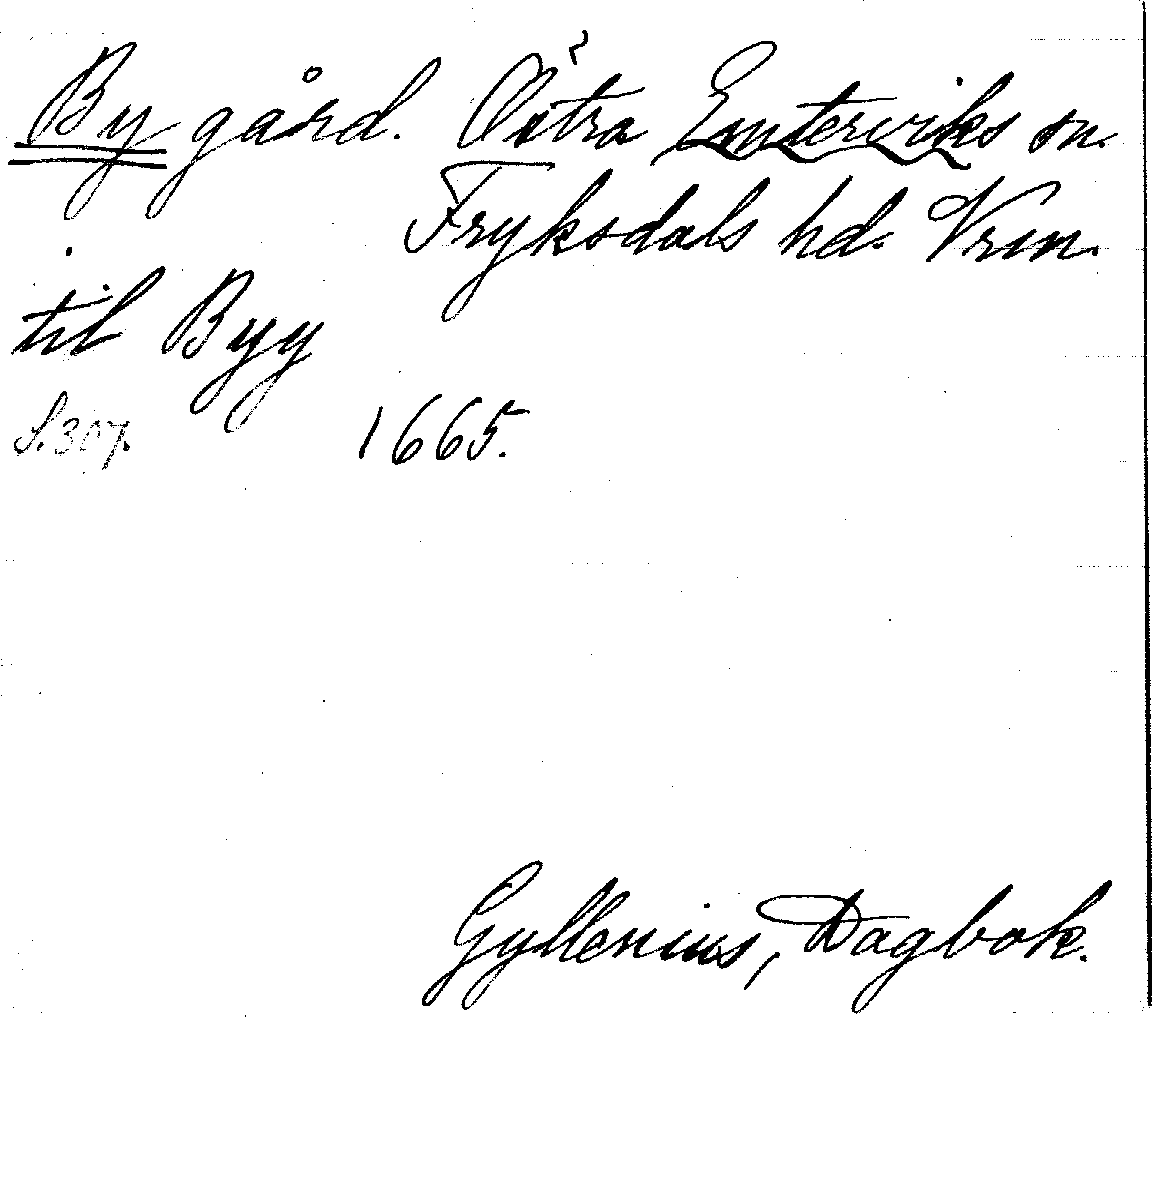 By gård. Östra Emterviks sn.
Fryksdals hd. Vrm.
til Byy
S. 307. 1665.
Gyllenius, Dagbok.